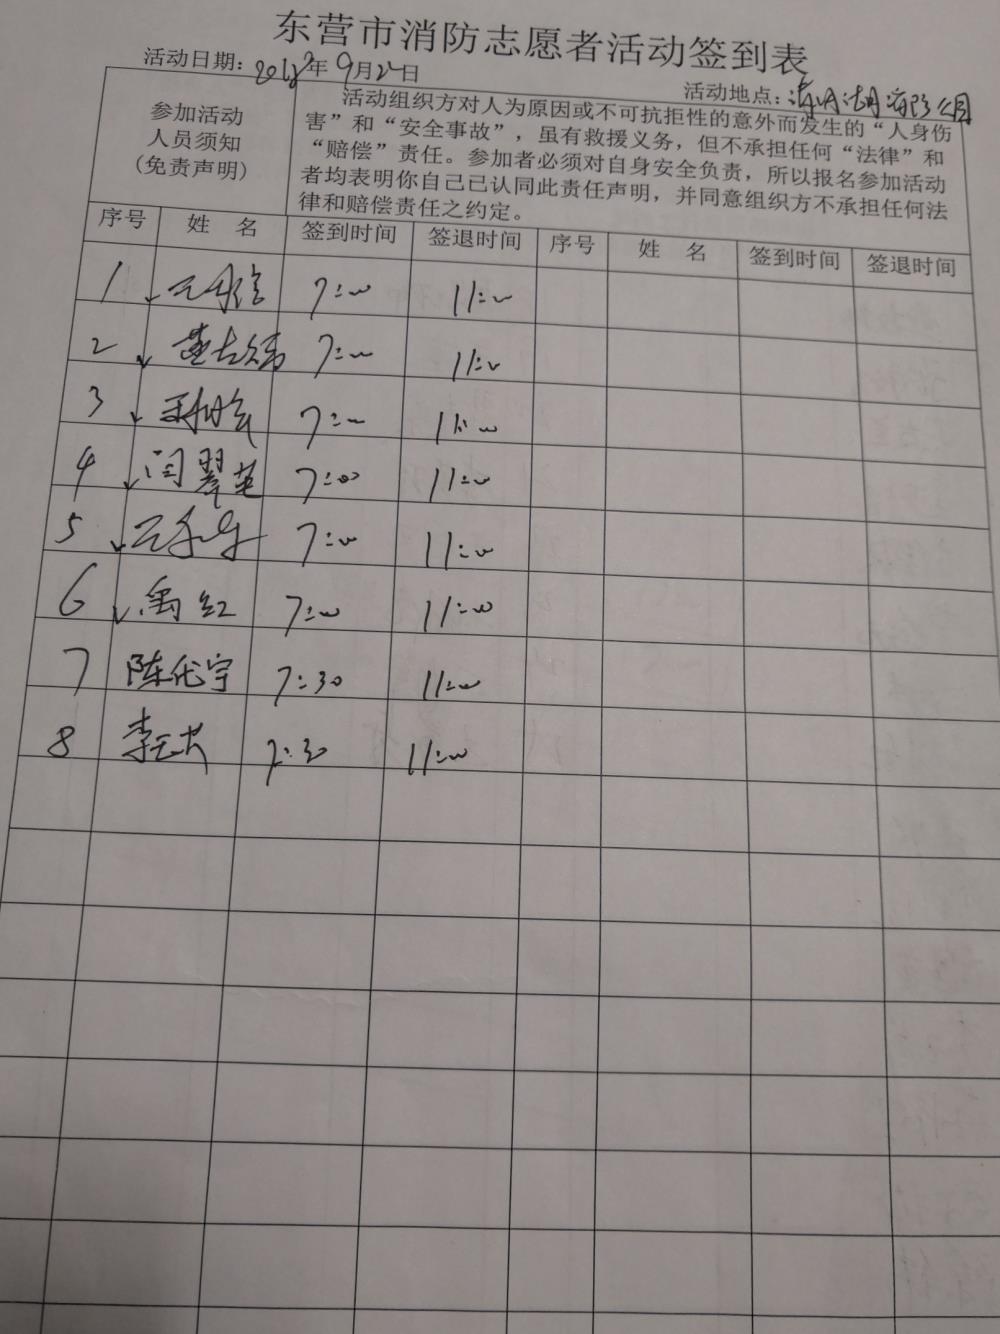 东营市消防志愿者活动签到表
活动日期：2018年9月22日
活动地点：清风湖消防公园
参加活动
人员须知
(免责声明)
活动组织方对人为原因或不可抗拒性的意外而发生的“人身伤
害”和“安全事故”，虽有救援义务，但不承担任何“法律”和
“赔偿”责任。参加者必须对自身安全负责，所以报名参加活动
者均表明你自己已认同此责任声明，并同意组织方不承担任何法
律和赔偿责任之约定。
序号 姓 名 签到时间 签退时间 序号 姓 名 签到时间 签退时间
1 7:00 11:00
2 7:00 11:00
3 7:00 11:00
4 闫翠英 7:00 11:00
5 7:00 11:00
6 禹红 7:00 11:00
7 陈代宇 7:30 11:00
8 7:30 11:00